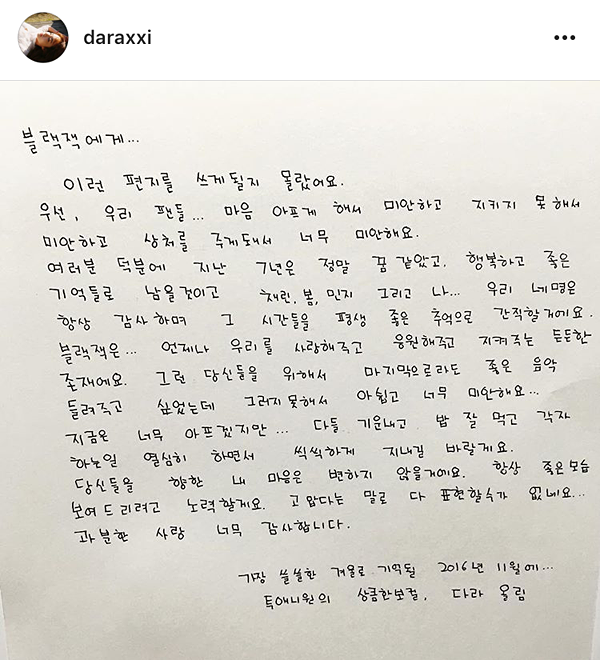 daraxxi
블랙잭에게...
이런 편지를 쓰게될지 몰랐어요.
우선, 우리 팬들... 마음 아프게 해서 미안하고 지키지 못해서
미안하고 상처를 주게돼서 너무 미안해요.
여러분 덕분에 지난 7년은 정말 꿈 같았고. 행복하고 좋은
기억들로 남을것이고 채린, 봄, 민지 그리고 나... 우리 네명은
항상 감사하며 그 시간들을 평생 좋은 추억으로 간직할거에요.
블랙잭은... 언제나 우리를 사랑해주고 응원해주고 지켜주는 든든한
존재에요. 그런 당신들을 위해서 마지막으로라도 좋은 음악
들려주고 싶었는데 그러지못해서 아쉽고 너무 미안해요...
지금은 너무 아프겠지만... 다들 기운내고 밥 잘 먹고 각자
하는일 열심히 하면서 씩씩하게 지내길 바랄게요.
당신들을 향한 내 마음은 변하지 않을거에요. 항상 좋은모습
보여드리려고 노력할게요. 고맙다는 말로 다 표현할수가 없네요...
과분한 사랑 너무 감사합니다.
가장 쓸쓸한 겨울로 기억될 2016년 11월에...
투애니원의 상큼한보컬, 다라 올림